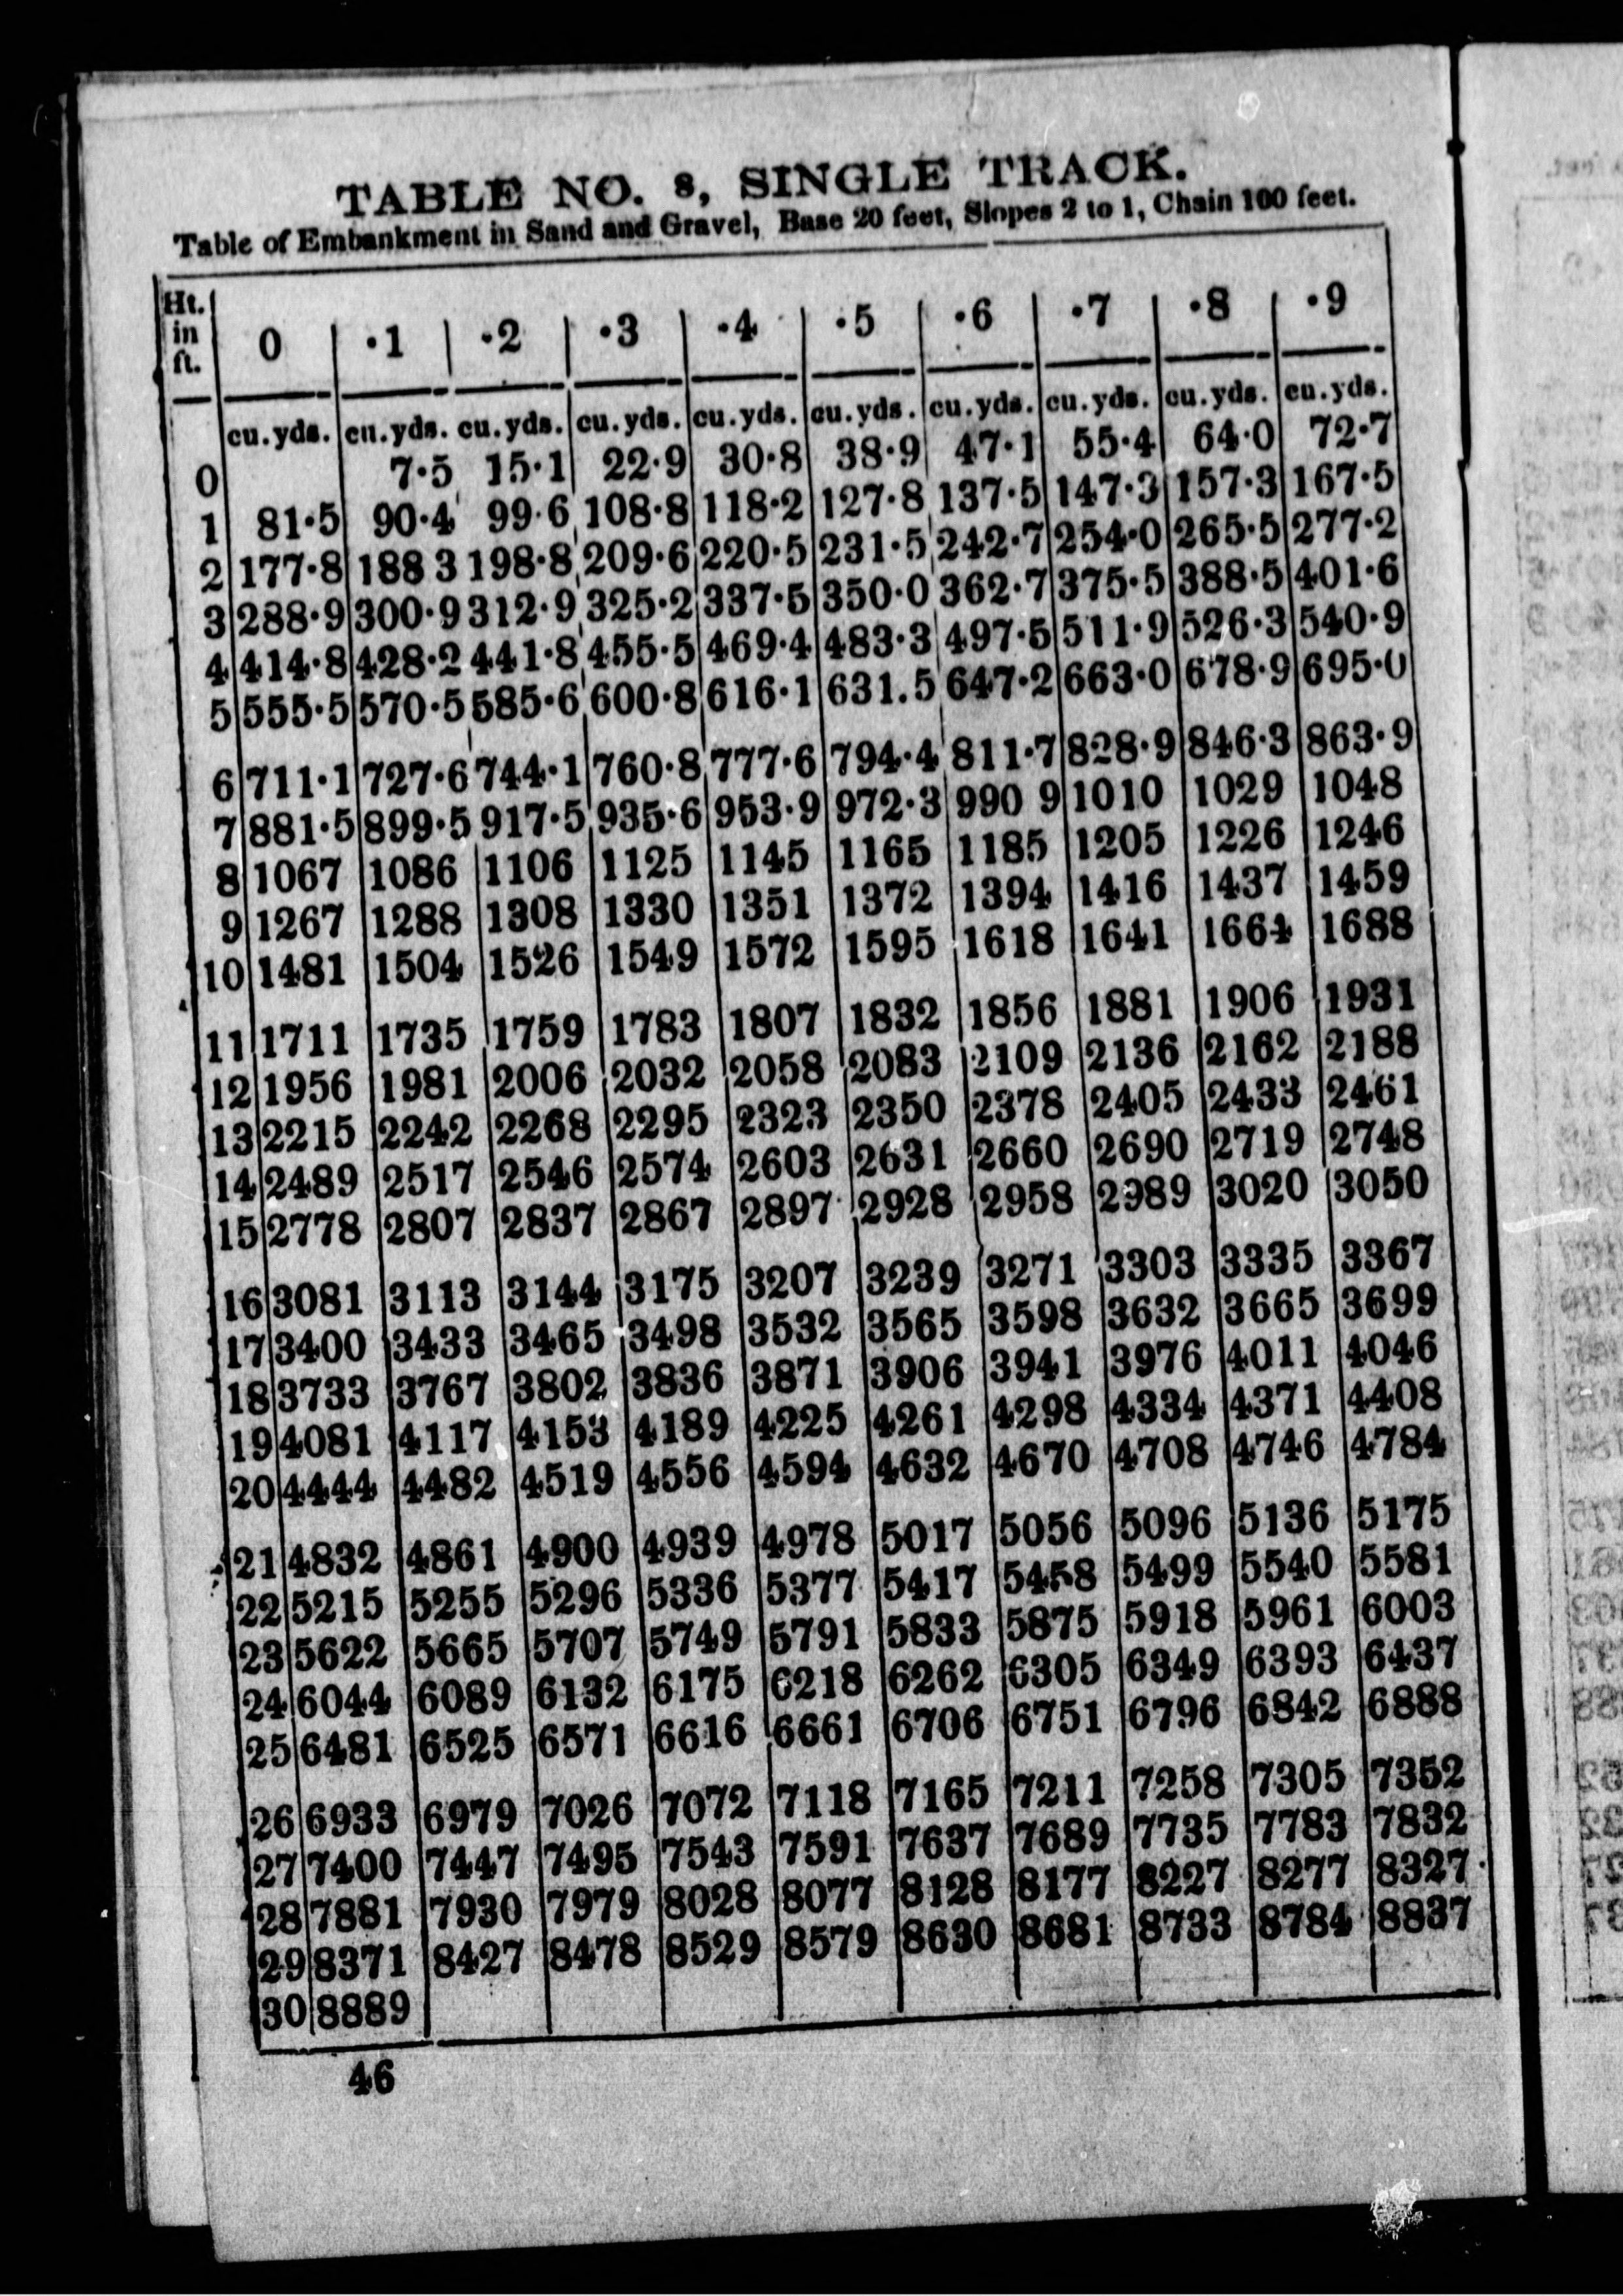 TABLE NO. 8, SINGLE TRACK.
Table of Embankment in Sand and Gravel, Base 20 feet, Slopes 2 to 1, Chain 100 feet.
Ht. in ft. 0 ·1 ·2 ·3 ·4 ·5 ·6 ·7 ·8 ·9
cu.yds. cu.yds. cu.yds. cu.yds. cu.yds. cu.yds. cu.yds. cu.yds. cu.yds. cu.yds.
0 7·5 15·1 22·9 30·8 38·9 47·1 55·4 64·0 72·7
1 81·5 90·4 99·6 108·8 118·2 127·8 137·5 147·3 157·3 167·5
2 177·8 188 3 198·8 209·6 220·5 231·5 242·7 254·0 265·5 277·2
3 288·9 300·9 312·9 325·2 337·5 350·0 362·7 375·5 388·5 401·6
4 414·8 428·2 441·8 455·5 469·4 483·3 497·5 511·9 526·3 540·9
5 555·5 570·5 585·6 600·8 616·1 631.5 647·2 663·0 678·9 695·0
6 711·1 727·6 744·1 760·8 777·6 794·4 811·7 828·9 846·3 863·9
7 881·5 899·5 917·5 935·6 953·9 972·3 990 9 1010 1029 1048
8 1067 1086 1106 1125 1145 1165 1185 1205 1226 1246
9 1267 1288 1308 1330 1351 1372 1394 1416 1437 1459
10 1481 1504 1526 1549 1572 1595 1618 1641 1664 1688
11 1711 1735 1759 1783 1807 1832 1856 1881 1906 1931
12 1956 1981 2006 2032 2058 2083 2109 2136 2162 2188
13 2215 2242 2268 2295 2323 2350 2378 2405 2433 2461
14 2489 2517 2546 2574 2603 2631 2660 2690 2719 2748
15 2778 2807 2837 2867 2897 2928 2958 2989 3020 3050
16 3081 3113 3144 3175 3207 3239 3271 3303 3335 3367
17 3400 3433 3465 3498 3532 3565 3598 3632 3665 3699
18 3733 3767 3802 3836 3871 3906 3941 3976 4011 4046
19 4081 4117 4153 4189 4225 4261 4298 4334 4371 4408
20 4444 4482 4519 4556 4594 4632 4670 4708 4746 4784
21 4832 4861 4900 4939 4978 5017 5056 5096 5136 5175
22 5215 5255 5296 5336 5377 5417 5458 5499 5540 5581
23 5622 5665 5707 5749 5791 5833 5875 5918 5961 6003
24 6044 6089 6132 6175 6218 6262 6305 6349 6393 6437
25 6481 6525 6571 6616 6661 6706 6751 6796 6842 6888
26 6933 6979 7026 7072 7118 7165 7211 7258 7305 7352
27 7400 7447 7495 7543 7591 7637 7689 7735 7783 7832
28 7881 7930 7979 8028 8077 8128 8177 8227 8277 8327
29 8371 8427 8478 8529 8579 8630 8681 8733 8784 8837
30 8889
46